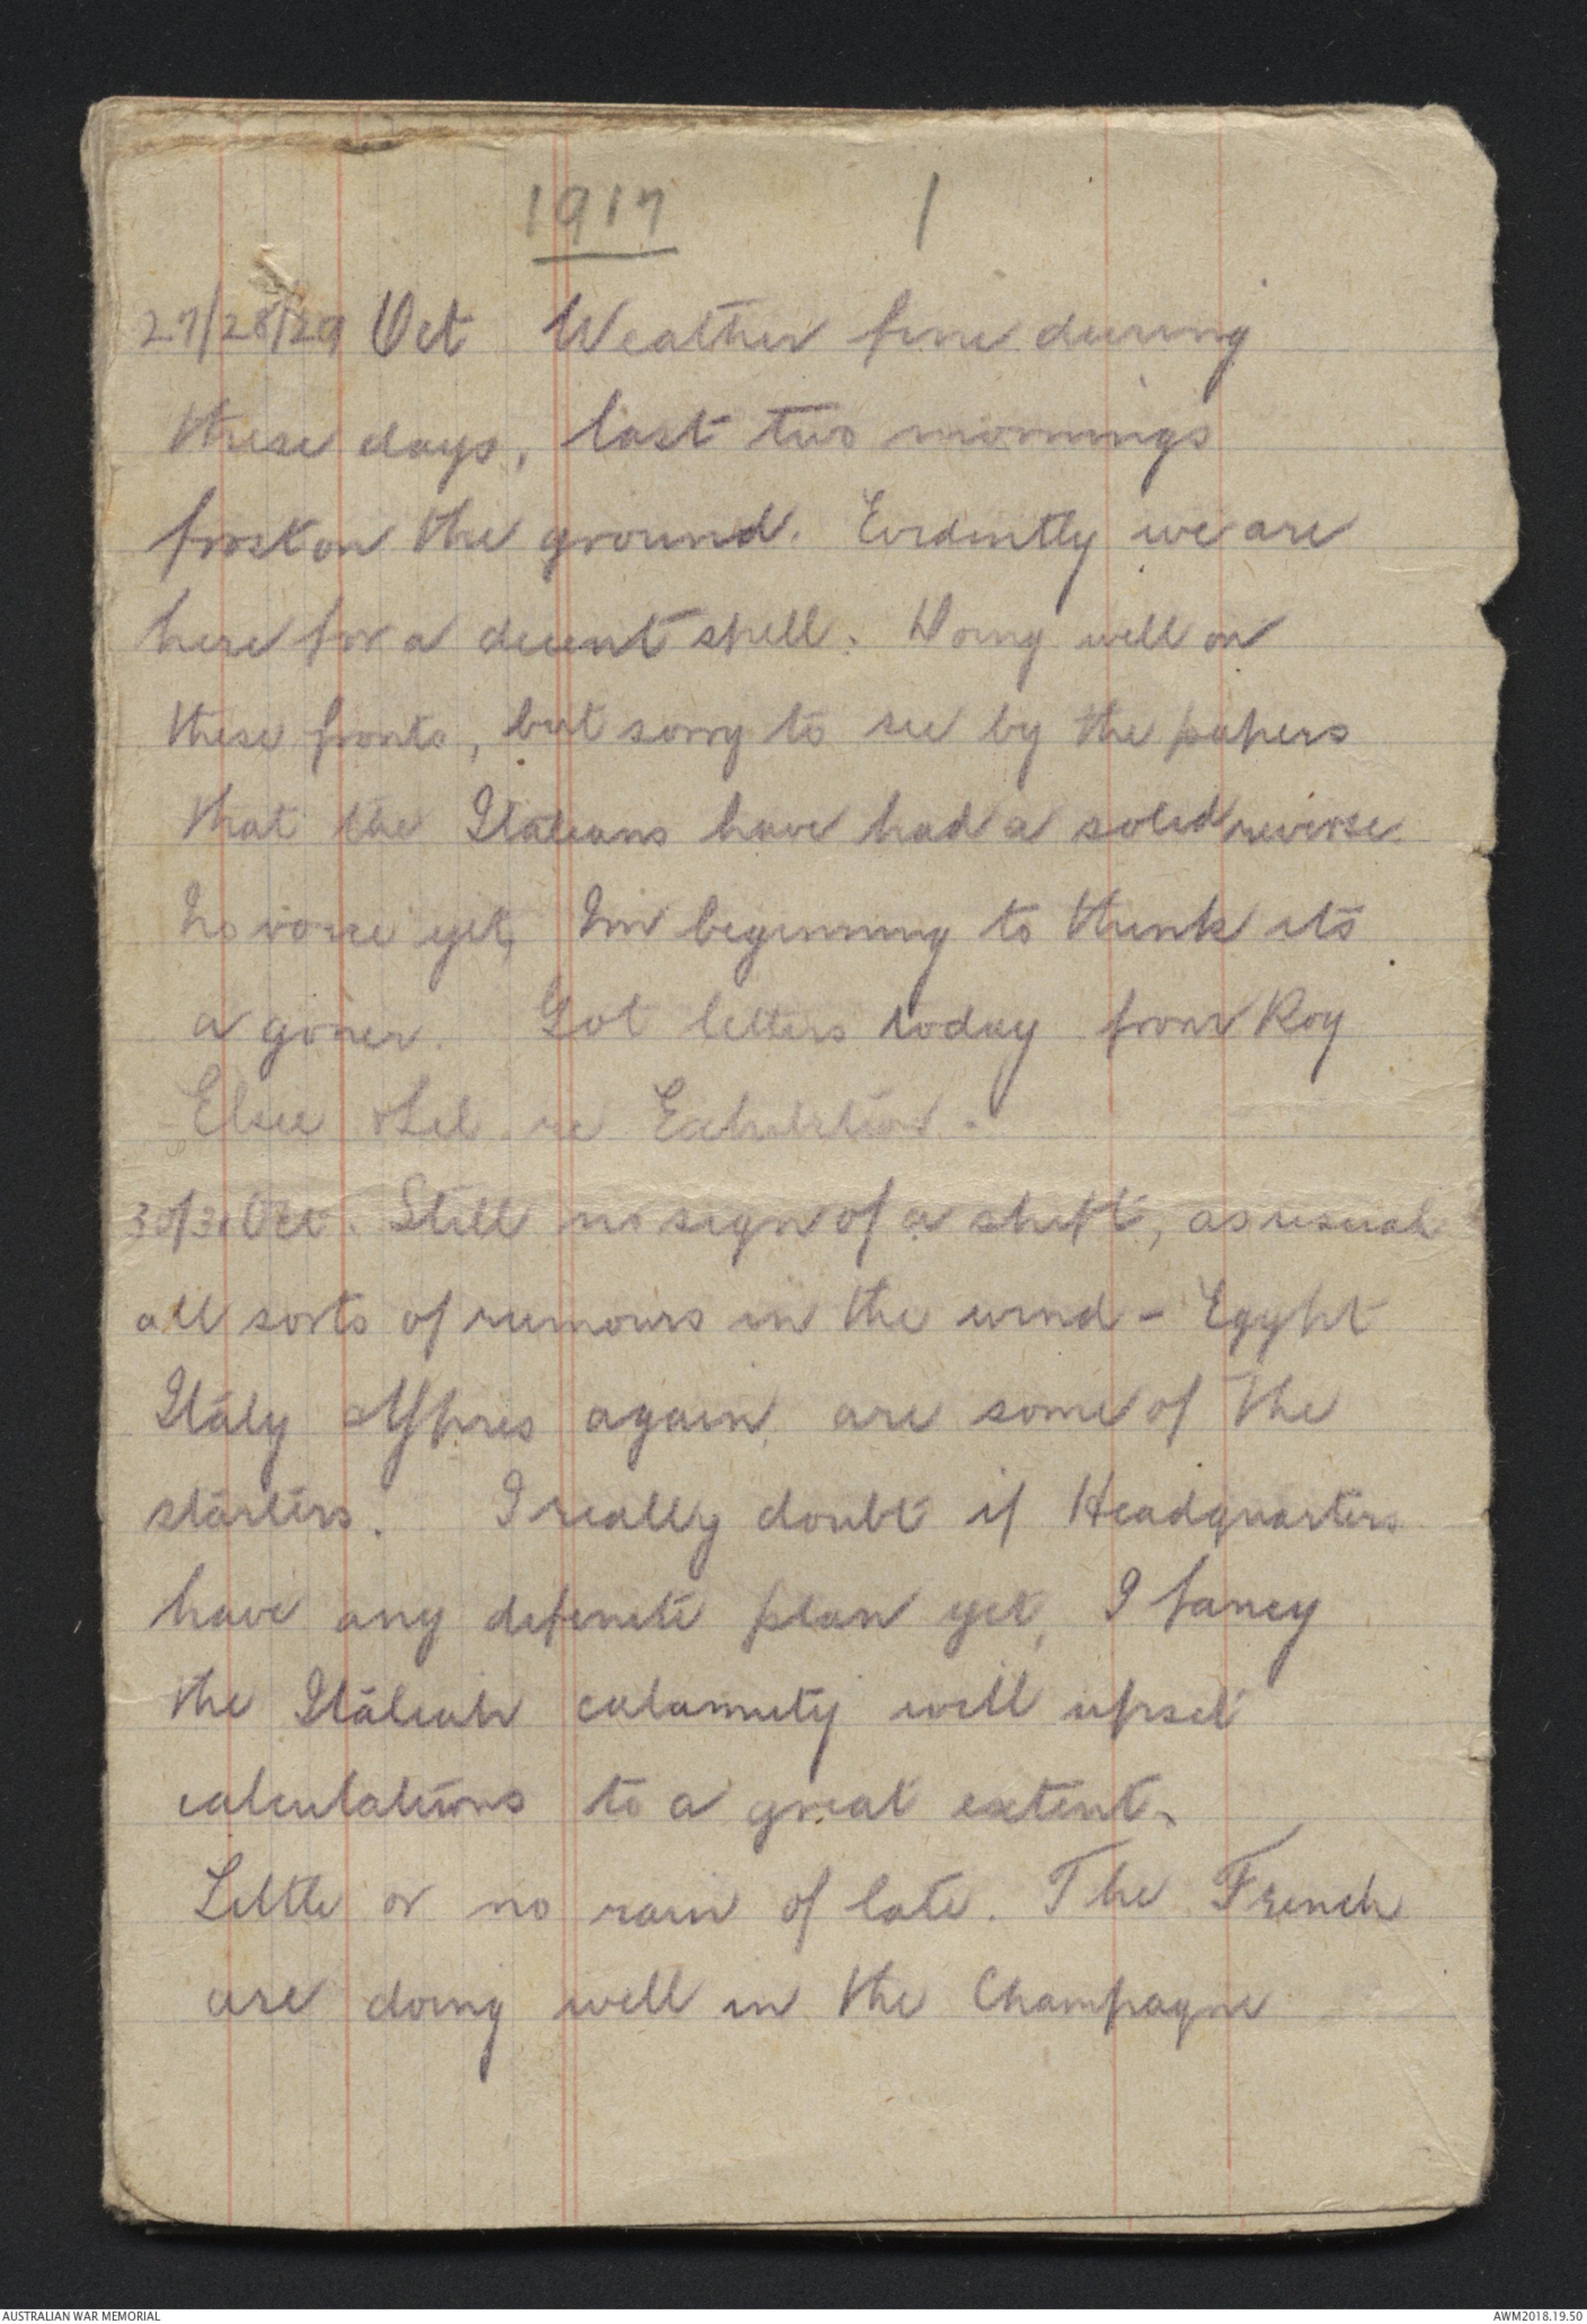 1917 1
27/28/29 Oct Weather fine during
these days, last two mornings
frost on the ground. Evidently we are
here for a decent spell. Doing well on
these fronts, but sorry to see by the papers
that the Italians have had a solid reverse.
No voice yet, Im beginning to think its
a goner. Got letters today from Roy
Elsie & Lil re Exhibition.
30/31 Oct. Still no sign of a shift, as usual
all sorts of rumours in the wind - Egypt
Italy & Ypres again, are some of the
starters. I really doubt if Headquarters
have any definite plan yet, I fancy
the Italian calamity will upset
calculations to a great extent.
Little or no rain of late. The French
are doing well in the Champagne
AUSTRALIAN WAR MEMORIAL
AWM2018.19.50